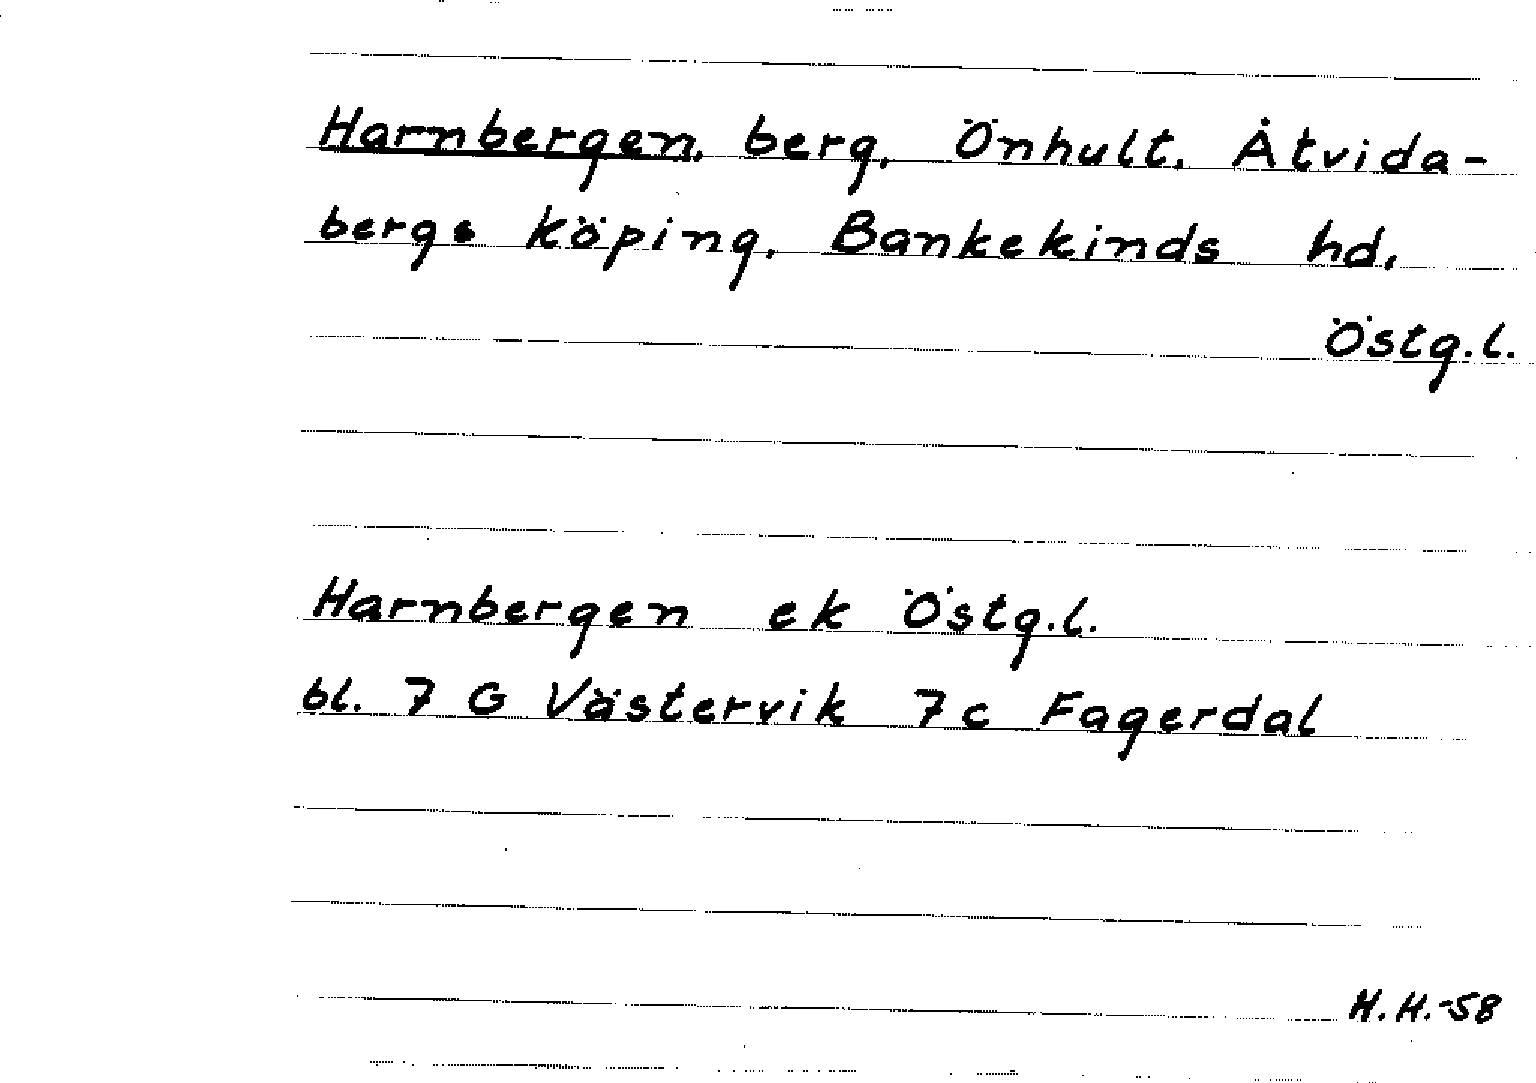 Harnbergen, berg, Önhult, Åtvida-
bergs köping, Bankekinds hd,
Östg.l.
Harnbergen ek Östg.l.
bl. 7 G Västervik 7c Fagerdal
H.H.-58